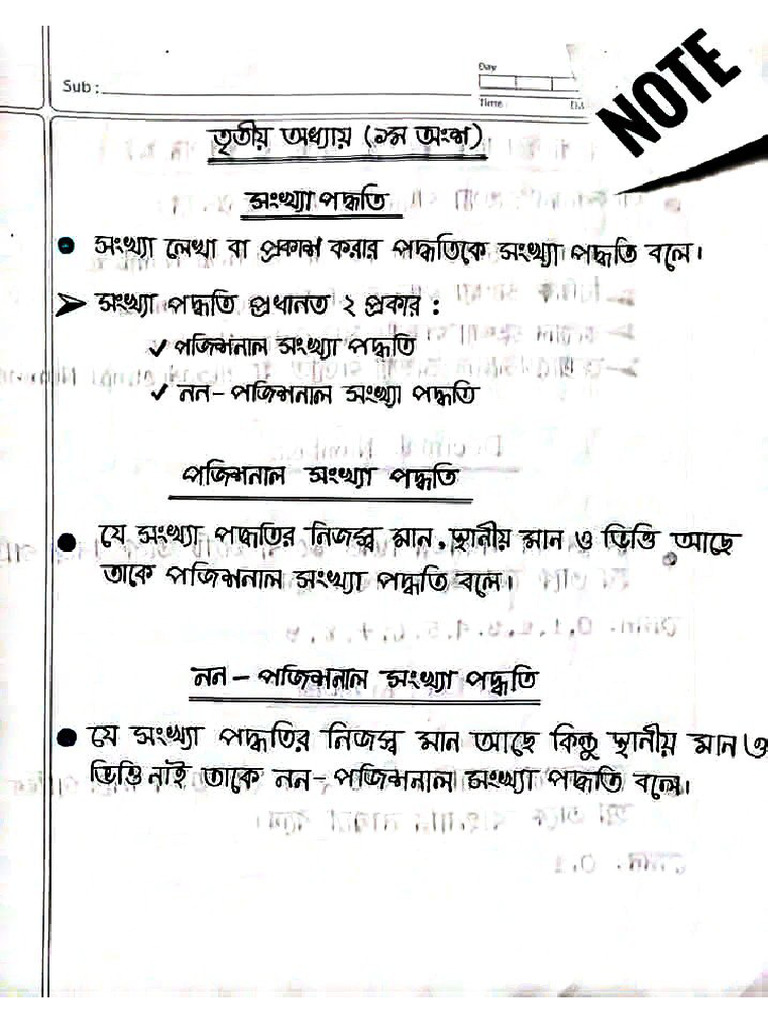 NOTE
Day
Sub :
Time
তৃতীয় অধ্যায় (১ম অংশ)
সংখ্যা পদ্ধতি
● সংখ্যা লেখা বা প্রকাশ করার পদ্ধতিকে সংখ্যা পদ্ধতি বলে।
➤ সংখ্যা পদ্ধতি প্রধানত ২ প্রকার :
✓ পজিশনাল সংখ্যা পদ্ধতি
✓ নন-পজিশনাল সংখ্যা পদ্ধতি
পজিশনাল সংখ্যা পদ্ধতি
● যে সংখ্যা পদ্ধতির নিজস্ব মান, স্থানীয় মান ও ভিত্তি আছে
তাকে পজিশনাল সংখ্যা পদ্ধতি বলে।
নন-পজিশনাল সংখ্যা পদ্ধতি
● যে সংখ্যা পদ্ধতির নিজস্ব মান আছে কিন্তু স্থানীয় মান ও
ভিত্তি নাই তাকে নন-পজিশনাল সংখ্যা পদ্ধতি বলে।